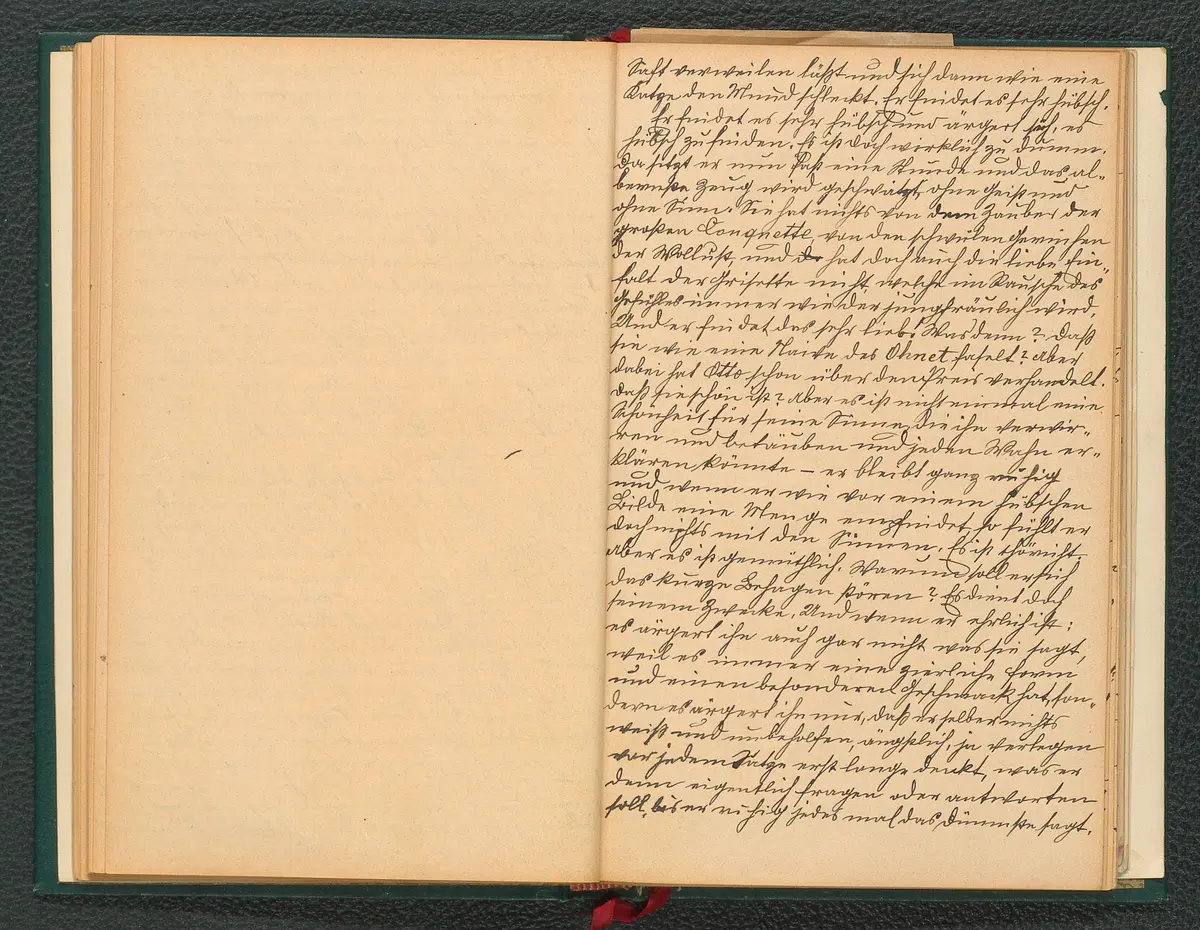 Saft verweilen läßt und sich dann wie eine
Katze den Mund schleckt. Er findet es sehr hübsch.
Er findet es sehr hübsch und ärgert sich, es
hübsch zu finden. Es ist doch wirklich zu dumm.
Da sitzt er nun fast eine Stunde und das al-
bernste Zeug wird geschwätzt, ohne Geist und
ohne Sinn. Sie hat nichts von dem Zauber der
großen Couquette, von den schwülen Gerüchen
der Wollust, und hat doch auch die liebe Ein-
falt der Grisette nicht, welche im Rausche des
Gefühles immer wieder jungfräulich wird.
Und er findet das sehr lieb! Was denn? Daß
sie wie eine Naive des Ohnet faselt? Aber
dabei hat Otto schon über den Preis verhandelt.
Daß sie schön ist? Aber es ist nicht einmal eine
Schönheit für seine Sinne, die ihn verwir-
ren und betäuben und jeden Wahn er-
klären könnte – er bleibt ganz ruhig
und wenn er wie vor einem hübschen
Bilde eine Menge empfindet, so fühlt er
doch nichts mit den Sinnen. Es ist thöricht.
Aber es ist gemüthlich. Warum soll er sich
das kurze Behagen stören? Es dient doch
seinem Zwecke. Und wenn er ehrlich ist:
es ärgert ihn auch gar nicht was sie sagt,
weil es immer eine zierliche Form
und einen besonderen Geschmack hat, son-
dern es ärgert ihn nur, daß er selber nichts
weiß und unbeholfen, ängstlich, ja verlegen
vor jedem Satze erst lange denkt, was er
denn eigentlich fragen oder antworten
soll, bis er ruhig jedes mal das Dümmste sagt.